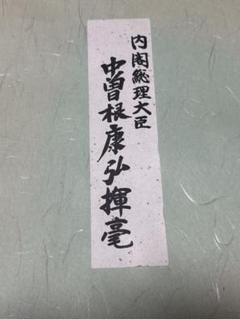 内閣総理大臣
中曽根康弘揮毫